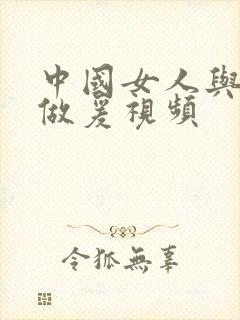 中國女人與
做爰視頻
令狐無辜